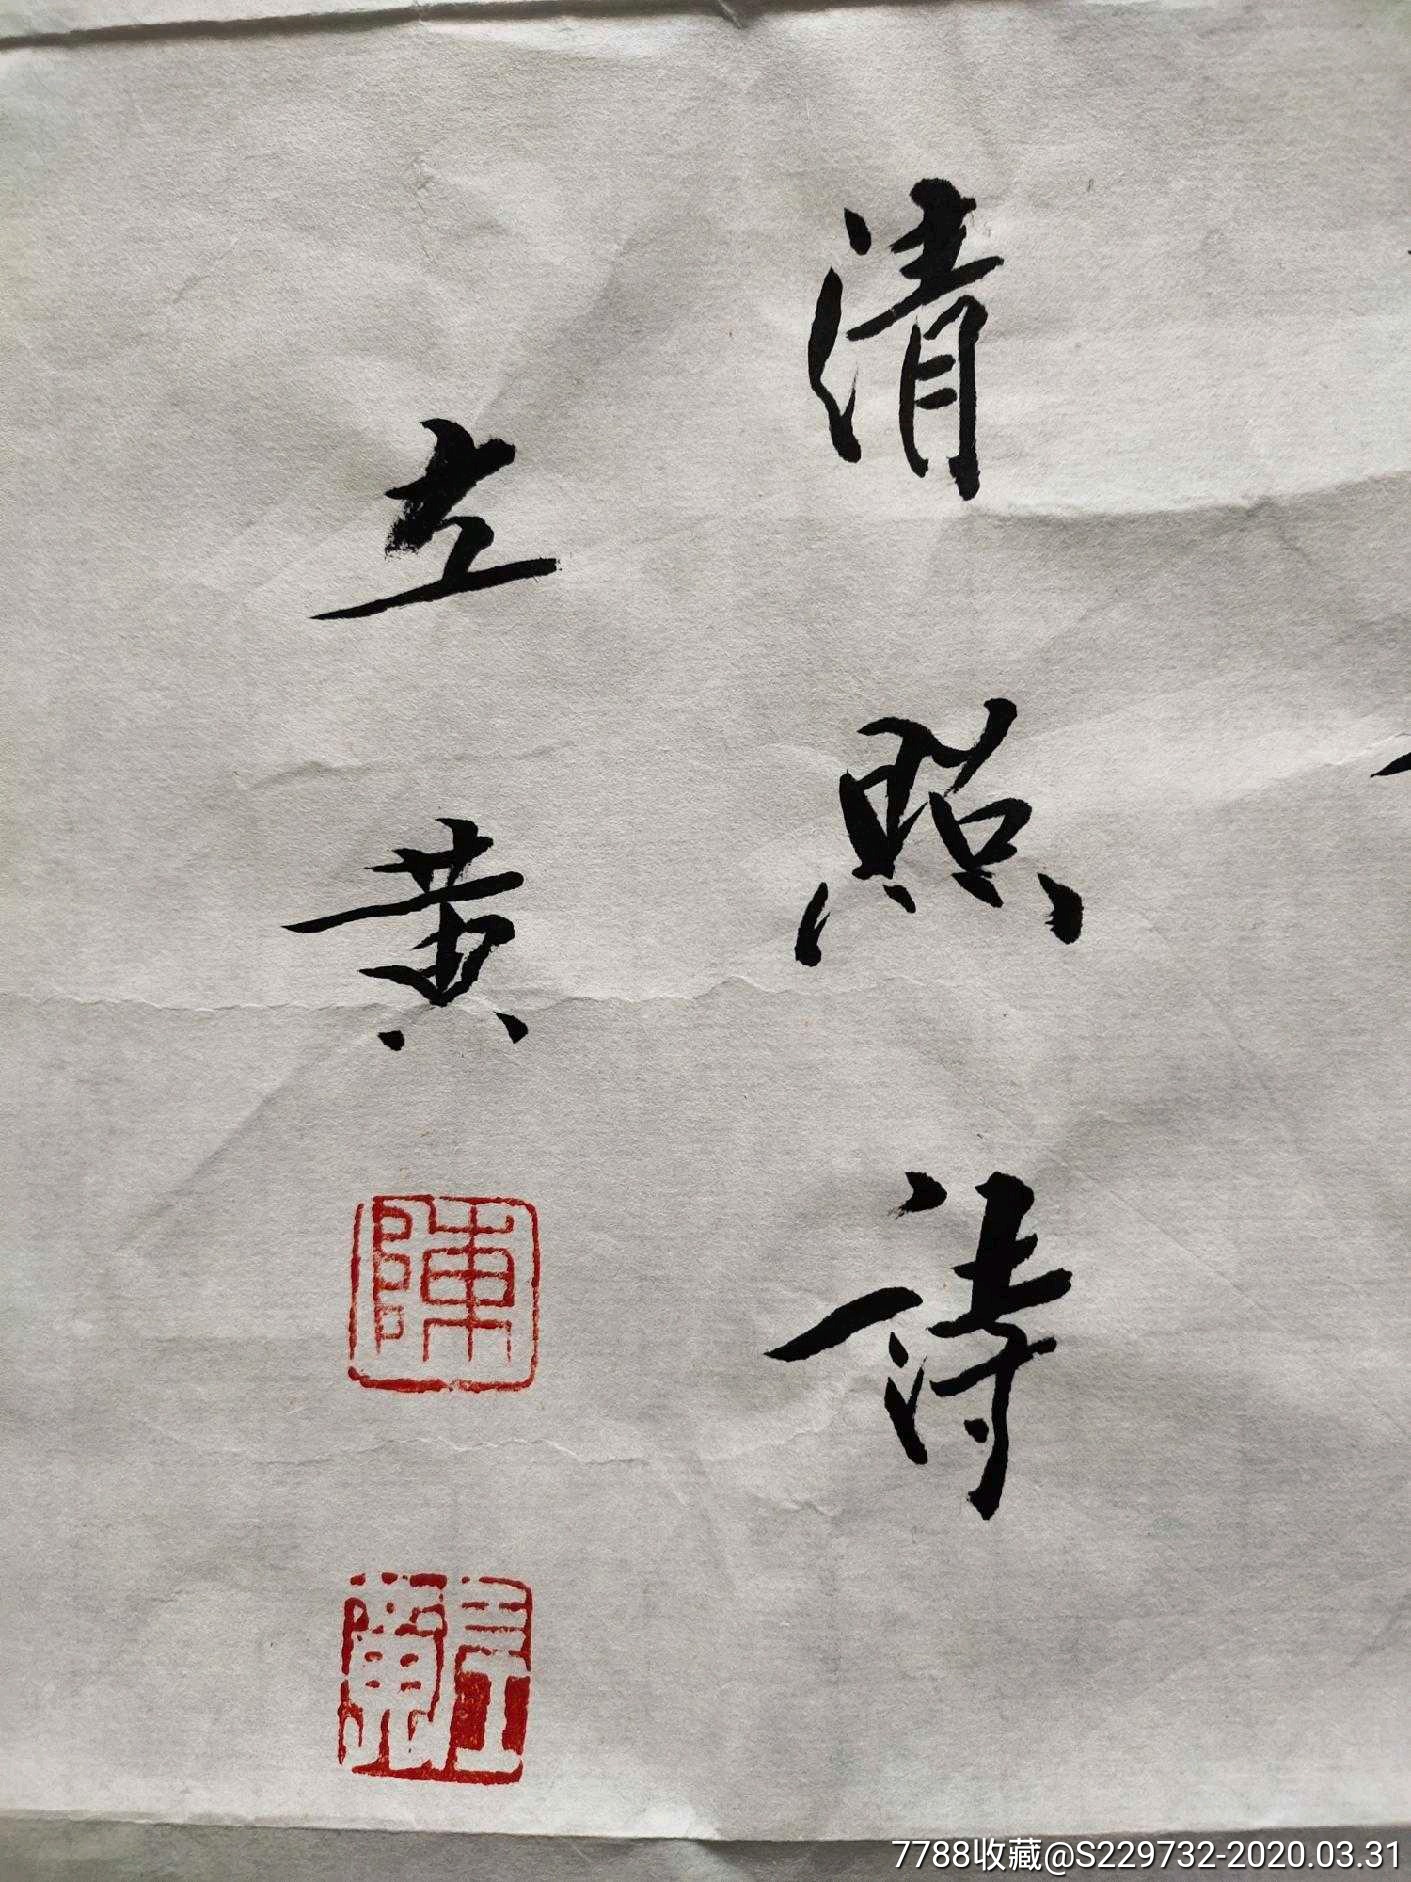 清照诗
左黄
陳
左黄
7788收藏@S229732-2020.03.31